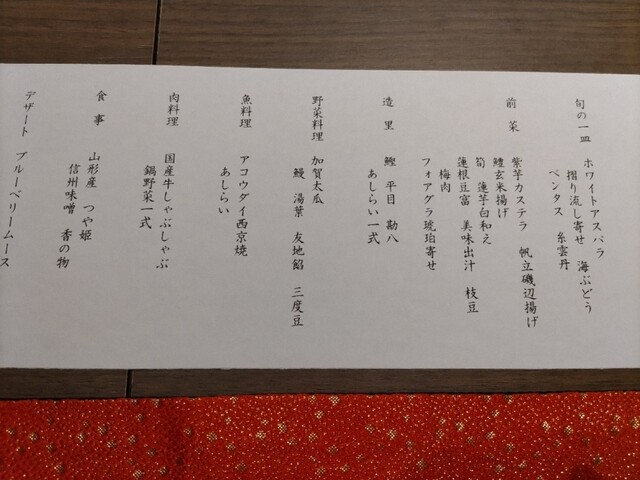 旬の一皿 ホワイトアスパラ
摺り流し寄せ 海ぶどう
ペンタス 糸雲丹
前菜 紫芋カステラ 帆立磯辺揚げ
鱧玄米揚げ
筍 蓮芋白和え
蓮根豆富 美味出汁 枝豆
梅肉
フォアグラ琥珀寄せ
造里 鰹 平目 勘八
あしらい一式
野菜料理 加賀太瓜
鰻 湯葉 友地餡 三度豆
魚料理 アコウダイ西京焼
あしらい
肉料理 国産牛しゃぶしゃぶ
鍋野菜一式
食事 山形産 つや姫
信州味噌 香の物
デザート ブルーベリームース